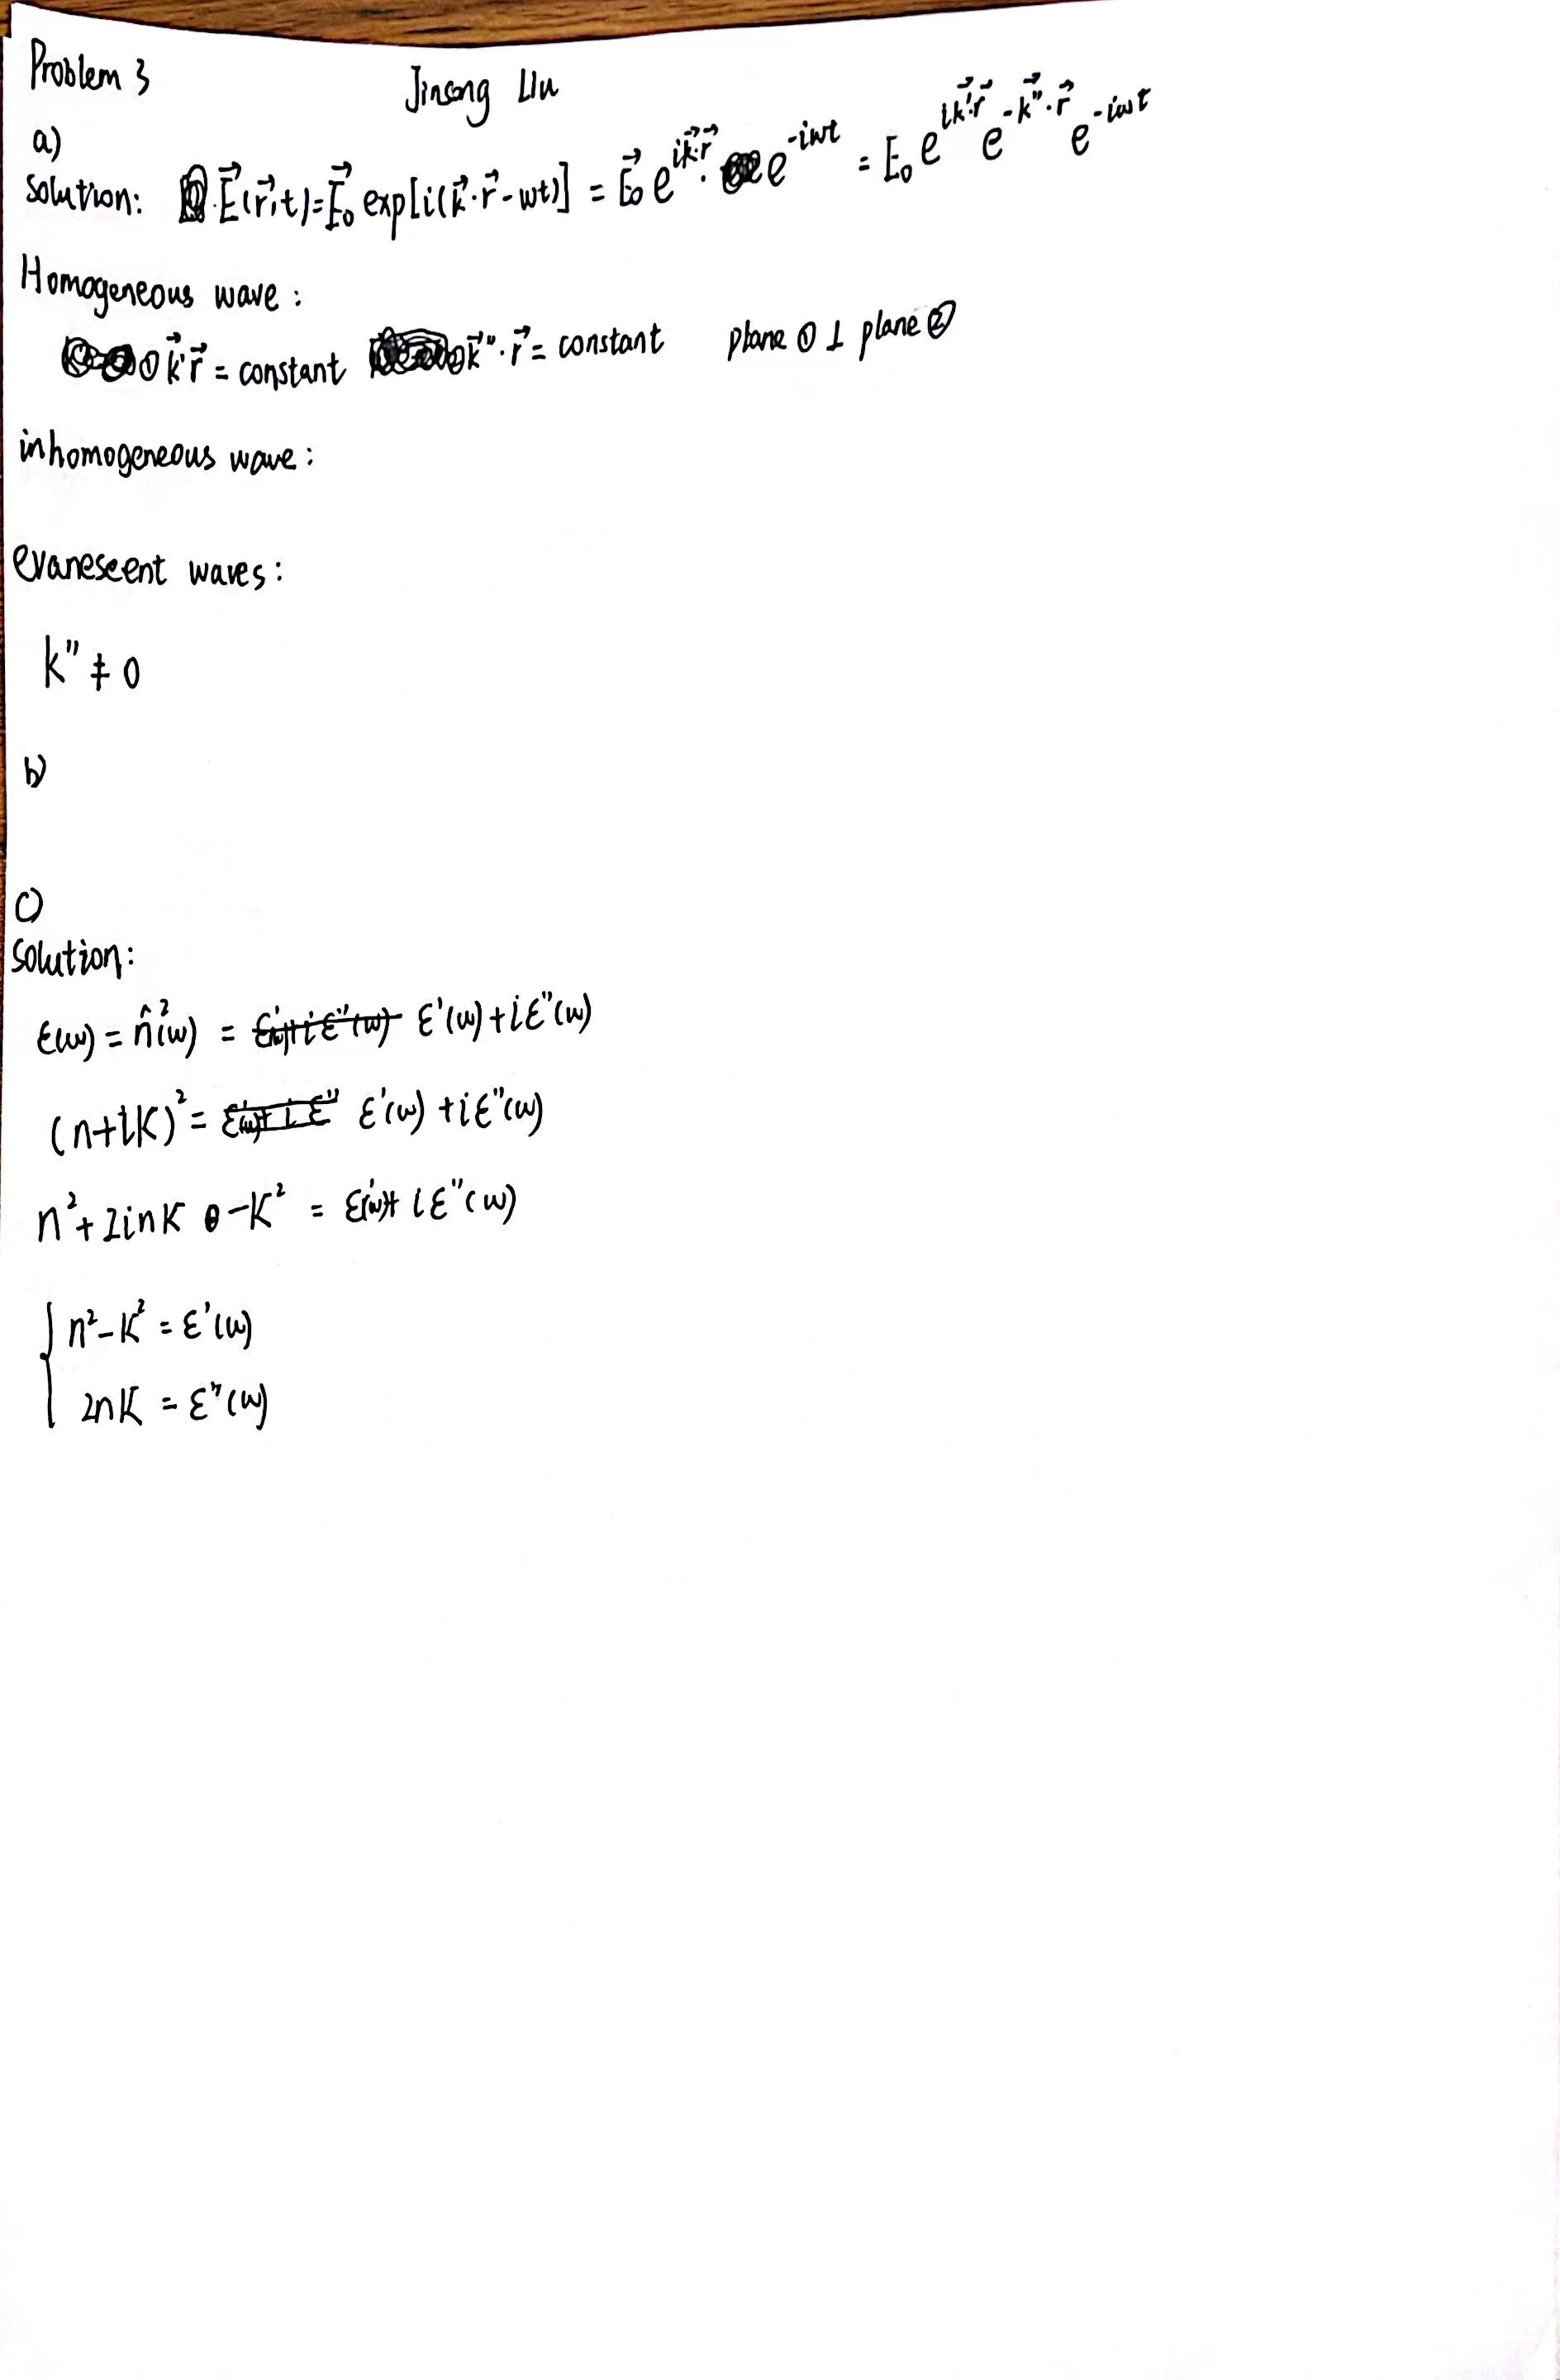 Problem 3 Jinsong LIu
a)
solution: E⃗(r⃗,t)=E⃗₀ exp[i(k⃗·r⃗-wt)] = E⃗₀ e^{ik⃗·r⃗} · e^{-iwt} = E₀ e^{ik⃗'·r⃗} e^{-k⃗''·r⃗} e^{-iwt}
Homogeneous wave :
① k⃗'r⃗ = constant k⃗''·r⃗ = constant plane ① ⊥ plane ②
inhomogeneous wave :
evanescent waves :
k'' ≠ 0
b)
c)
Solution:
ε(w) = n̂²(w) = ε'(w)+iε''(w)
(n+iK)² = ε'(w) +iε''(w)
n²+2inK -K² = ε'(w)+ iε''(w)
n²-K² = ε'(w)
2nK = ε''(w)